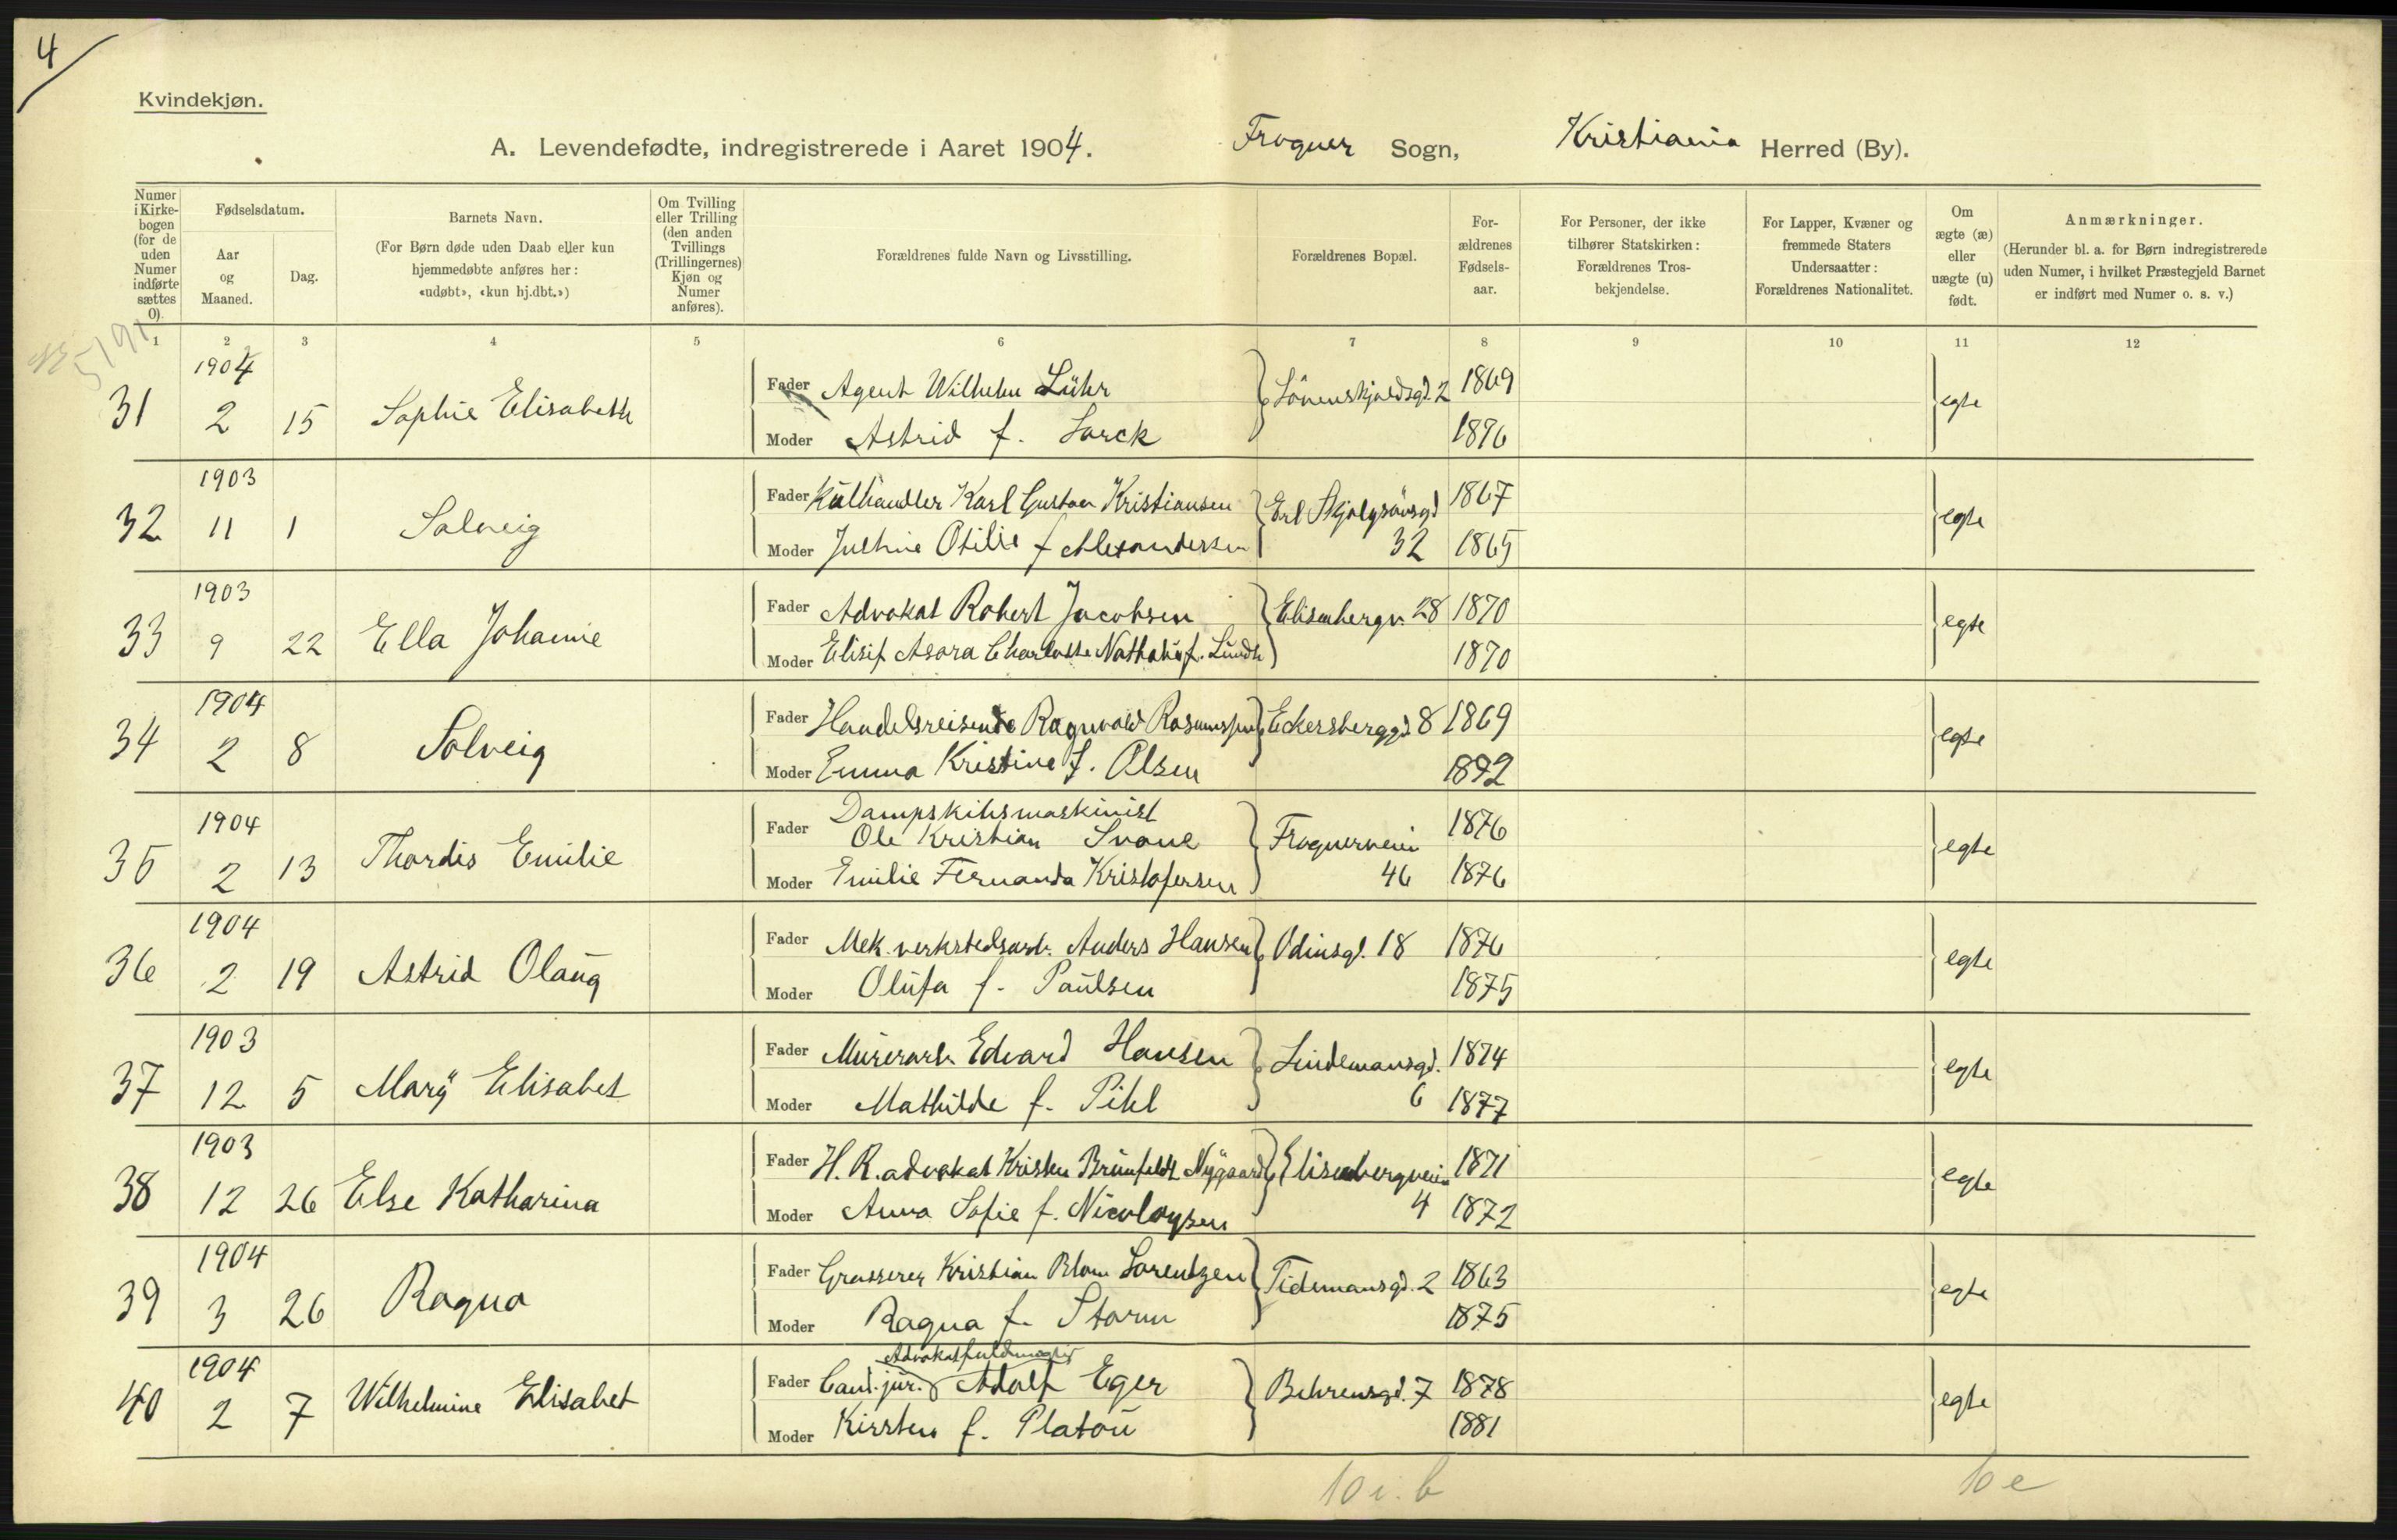 4
Kvindekjøn.
A. Levendefødte, indregistrerede i Aaret 1904. Frogner Sogn, Kristiania Herred (By).
Numer i Kirkebogen (for de uden Numer indførte sættes 0).
Fødselsdatum.
Aar og Maaned.
Dag.
Barnets Navn.
(For Børn døde uden Daab eller kun hjemmedøbte anføres her: «udøbt», «kun hj.dbt.»)
Om Tvilling eller Trilling (den anden Tvillings (Trillingernes) Kjøn og Numer anføres).
Forældrenes fulde Navn og Livsstilling.
Forældrenes Bopæl.
Forældrenes Fødselsaar.
For Personer, der ikke tilhører Statskirken: Forældrenes Trosbekjendelse.
For Lapper, Kvæner og fremmede Staters Undersaatter: Forældrenes Nationalitet.
Om ægte (æ) eller uægte (u) født.
Anmærkninger.
(Herunder bl. a. for Børn indregistrerede uden Numer, i hvilket Præstegjeld Barnet er indført med Numer o. s. v.)
1 2 3 4 5 6 7 8 9 10 11 12
5191
31 1904 2 15 Sophie Elisabeth Fader Agent Wilhelm Lühr Lövenskjoldsgd. 2 1869 egte
Moder Astrid f. Lorck 1876
32 1903 11 1 Solveig Fader Kulhandler Karl Gustav Kristiansen Erl Skjalgsönsgd 1867 egte
Moder Juthine Otilie f Alexandersen 32 1865
33 1903 9 22 Ella Johanne Fader Advokat Robert Jacobsen Elisenbergv. 28 1870 egte
Moder Elisif Asora Charlotte Nathalie f. Lundh 1870
34 1904 2 8 Solveig Fader Handelsreisende Ragnvald Rasmussen Eckersberggd. 8 1869 egte
Moder Emma Kristine f. Olsen 1872
35 1904 2 13 Thordis Emilie Fader Dampskibsmaskinist
Ole Kristian Svane Frognerveien 1876 egte
Moder Emilie Fernanda Kristofersen 46 1876
36 1904 2 19 Astrid Olaug Fader Mek. verkstedsarb. Anders Hansen Odinsgd. 18 1876 egte
Moder Olufa f. Paulsen 1875
37 1903 12 5 Mary Elisabet Fader Murerarb. Edvard Hansen Lindemansgd. 1874 egte
Moder Mathilde f. Pihl 6 1877
38 1903 12 26 Else Katharina Fader H. R. advokat Kristen Brunfeldt Nygaard Elisenbergveien 1871 egte
Moder Anna Sofie f. Nicolaysen 4 1872
39 1904 3 26 Ragna Fader Grosserer Kristian Blom Lorentzen Tidemansgd. 2 1863 egte
Moder Ragna f. Storm 1875
Advokatfuldmægtig
40 1904 2 7 Wilhelmine Elisabet Fader Cand. jur. Adolf Eger Behrensgd. 7 1878 egte
Moder Kirsten f. Platou 1881
10 i. b 10 e